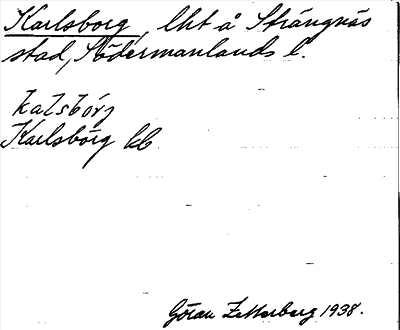 Karlsborg, lht å Strängnäs
stad, Södermanlands l.
kalsbórj
Karlsborg kb
Göran Zetterberg 1938.